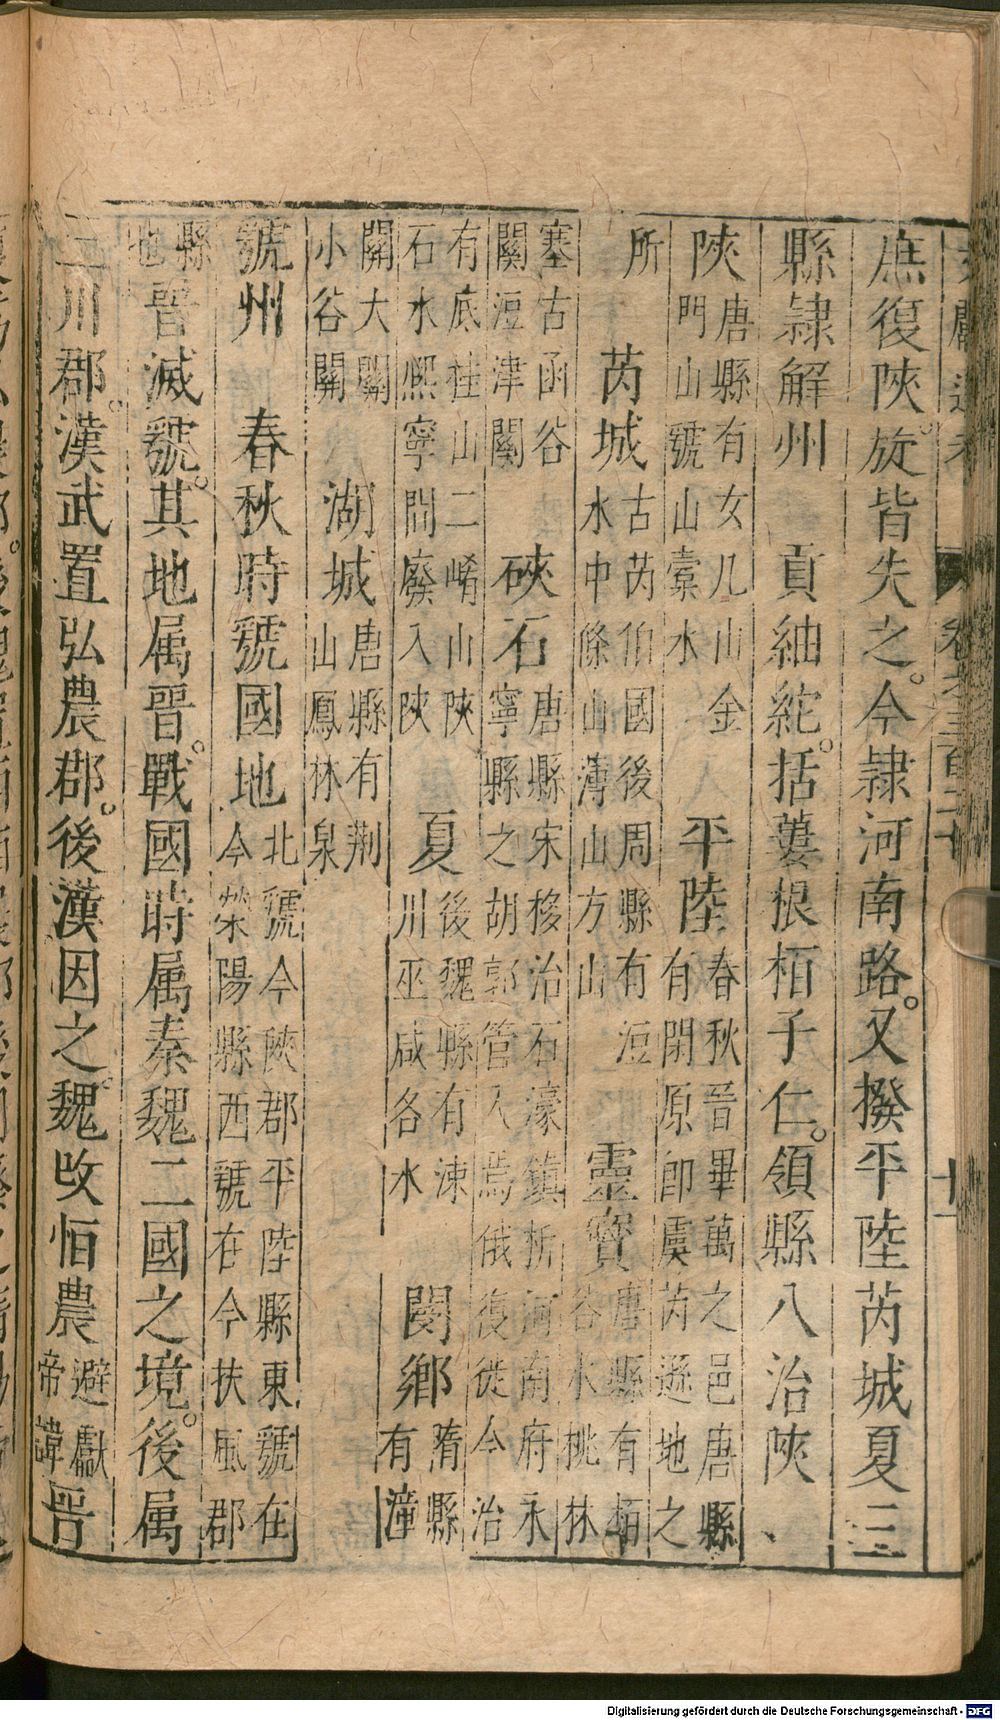 文獻通考 卷之三百二十 十一
庶復陝。旋皆失之。今隸河南路。又撥平陸芮城夏三
縣隸解州 貢紬絁。括蔞根栢子仁。領縣八治陝
陝唐縣有女几山金門山虢山槖水 平陸春秋晉畢萬之邑唐縣有閑原即虞芮遜地之
所 芮城古芮伯國後周縣有洹水中條山薄山方山 靈寶唐縣有栢谷水桃林
塞古函谷關洹津關 硤石唐縣宋移治石濠鎮析河南府永寧縣之胡郭管入焉俄復徙今治
有底柱山二崤山陝石水熙寧間廢入陝 夏後魏縣有涑川巫咸各水 閿鄉隋縣有潼
關大關小谷關 湖城唐縣有荆山鳳林泉
虢州 春秋時虢國地北虢今陝郡平陸縣東虢在今滎陽縣西虢在今扶風郡
縣地晉滅虢。其地属晉。戰國時属秦魏二國之境。後属
三川郡。漢武置弘農郡。後漢因之。魏攺恒農避獻帝諱晉
Digitalisierung gefördert durch die Deutsche Forschungsgemeinschaft - DFG